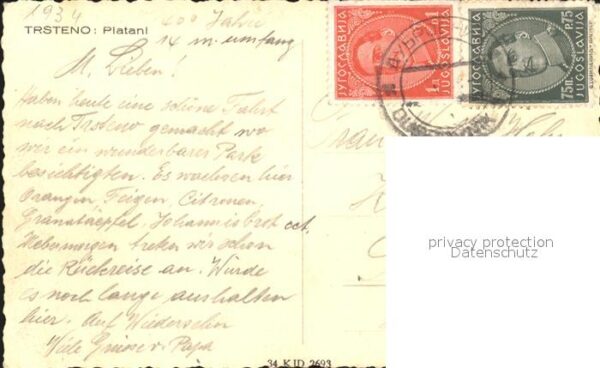 1934
TRSTENO: Platani
400 Jahre
14 m umfang
M. Lieben!
Haben heute eine schöne Fahrt
nach Trsteno gemacht wo
wir ein wunderbarer Park
besichtigten. Es wachsen hier
Orangen, Feigen, Citronen,
Granatäpfel, Johannisbrot ect.
Uebermorgen treten wir schon
die Rückreise an. Würde
es noch lange aushalten
hier. Auf Wiedersehn
Viele Grüsse v. Papa
34 KJD 2693
ЈУГОСЛАВИЈА
1 Д
JUGOSLAVIJA
ЈУГОСЛАВИЈА
P.75
75п.
JUGOSLAVIJA
privacy protection
Datenschutz